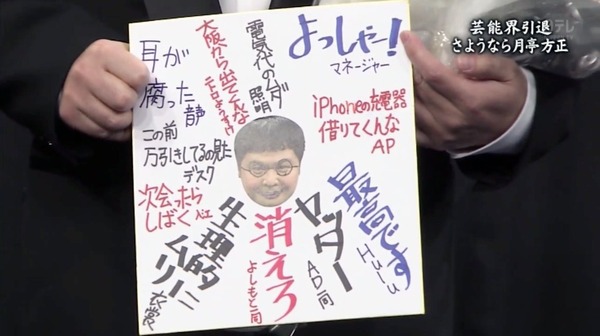 芸能界引退
さようなら月亭方正
テレ
よっしゃー!
マネージャー
電気代のムダ
照明
大阪から出てくんな
耳が
腐った
音声
iPhoneの充電器
借りてくんな
AP
この前
万引きしてるの見た
デスク
次会ったら
しばく
最高です
Hulu
ヤッター
AD一同
消えろ
よしもと一同
生理的に
ムリー
衣裳